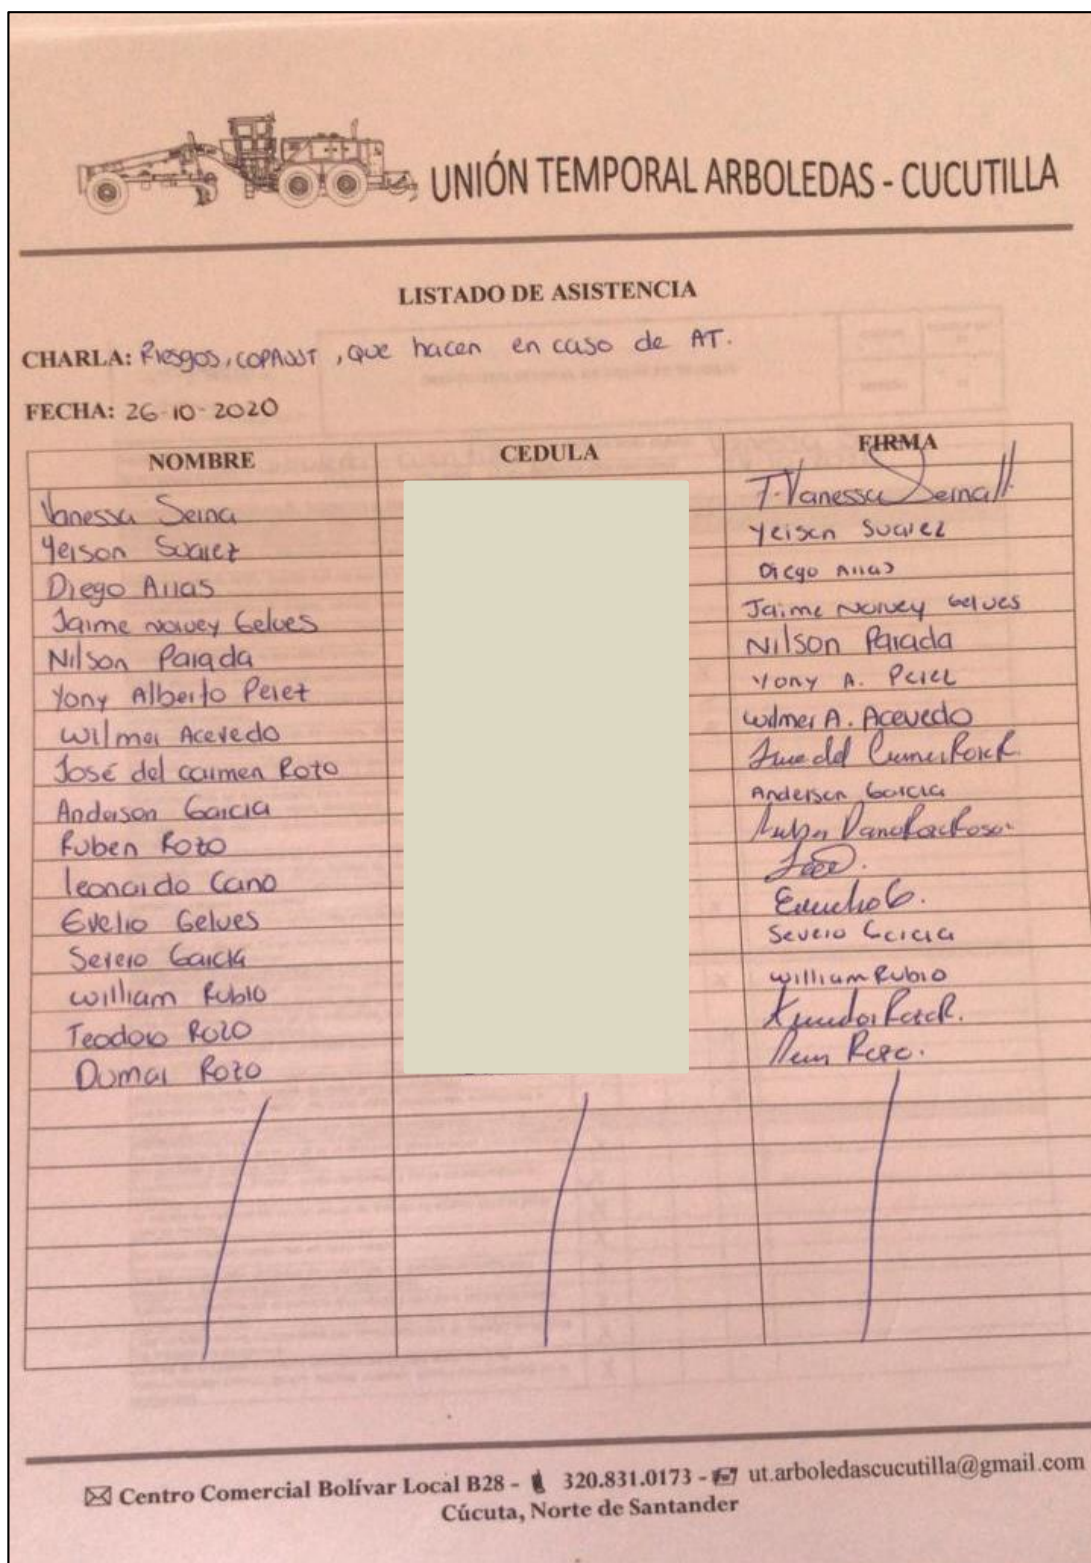 UNIÓN TEMPORAL ARBOLEDAS - CUCUTILLA
LISTADO DE ASISTENCIA
CHARLA: Riesgos, COPASST, que hacen en caso de AT.
FECHA: 26-10-2020
NOMBRE CEDULA FIRMA
Vanessa Serna Vanessa Serna
Yeison Suarez Yeison Suarez
Diego Arias Diego Arias
Jaime Norvey Gelves Jaime Norvey Gelves
Nilson Parada Nilson Parada
Yony Alberto Perez Yony A. Perez
Wilmer Acevedo Wilmer A. Acevedo
José del carmen Rozo
Anderson Garcia Anderson Garcia
Ruben Rozo
leonardo Cano
Evelio Gelves
Severo Garcia Severo Garcia
william Rubio william Rubio
Teodoro Rozo
Dumar Rozo
Centro Comercial Bolívar Local B28 - 320.831.0173 - ut.arboledascucutilla@gmail.com
Cúcuta, Norte de Santander